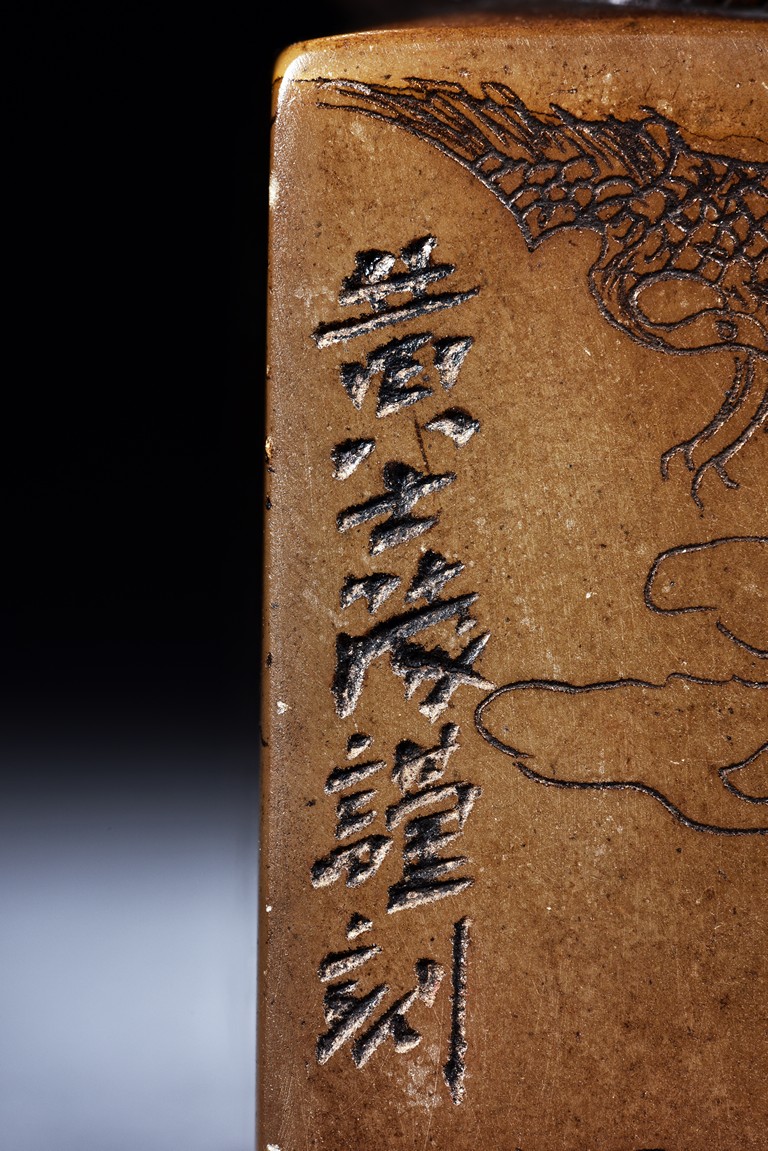 黃士陵謹刻